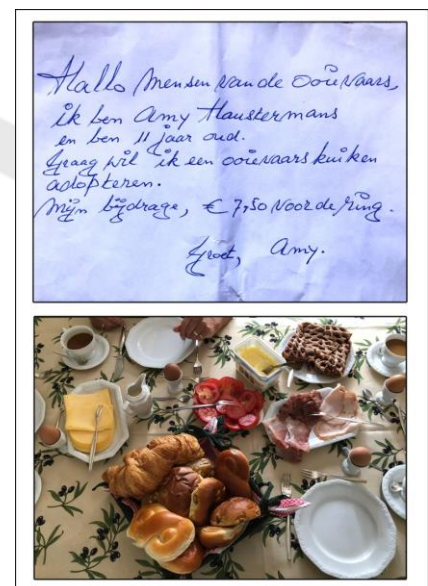 Hallo Mensen van de Ooievaars,
ik ben Amy Haustermans
en ben 11 jaar oud.
Graag wil ik een ooievaars kuiken
adopteren.
Mijn bijdrage, € 7,50 voor de ring.
Groet, Amy.